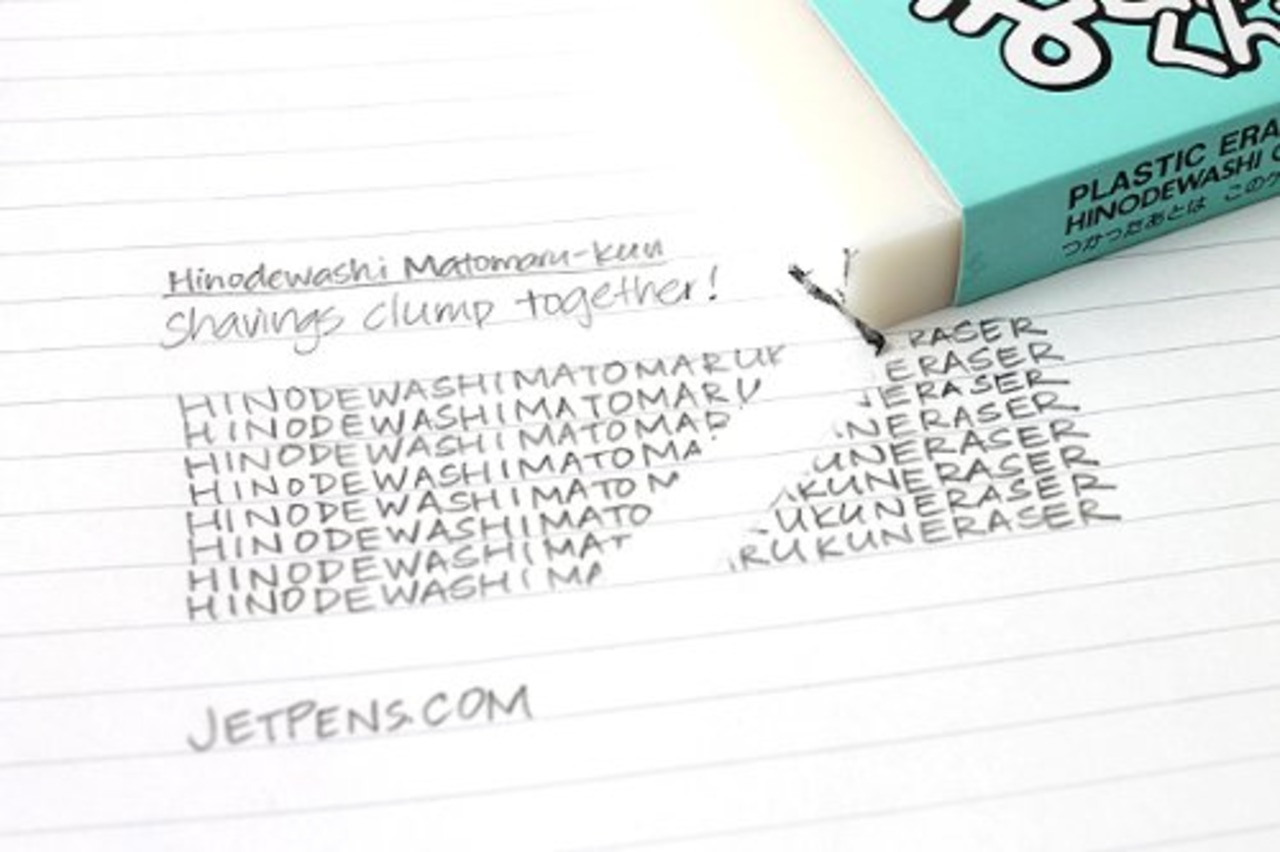 Hinodewashi Matomaru-kun
Shavings clump together!
HINODEWASHIMATOMARUK ERASER
HINODEWASHIMATOMARU ERASER
HINODEWASHIMATOMAR ERASER
HINODEWASHIMATOMA NERASER
HINODEWASHIMATOM UNERASER
HINODEWASHIMATO KUNERASER
HINODEWASHIMAT UKUNERASER
HINODEWASHIMA RUKUNERASER
JETPENS.COM
くん
PLASTIC ERA
HINODEWASHI
つかったあとは このケ